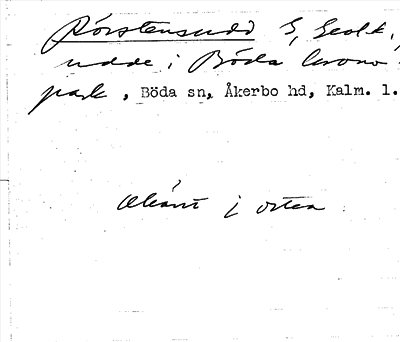 Rörstensudd S, Geolk.,
udde i Böda krono-
park, Böda sn, Åkerbo hd, Kalm. l.
Okänt i orten